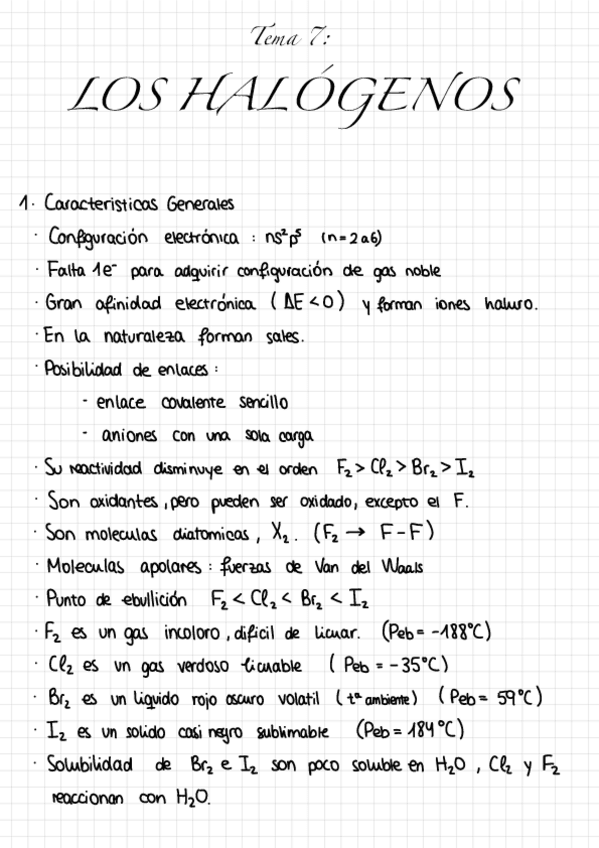 Tema 7:
LOS HALÓGENOS
1. Caracteristicas Generales
· Configuración electrónica : ns²p⁵ (n=2 a 6)
· Falta 1e⁻ para adquirir configuración de gas noble
· Gran afinidad electrónica (ΔE<0) y forman iones haluro.
· En la naturaleza forman sales.
· Posibilidad de enlaces :
- enlace covalente sencillo
- aniones con una sola carga
· Su reactividad disminuye en el orden F₂ > Cl₂ > Br₂ > I₂
· Son oxidantes, pero pueden ser oxidado, excepto el F.
· Son moleculas diatomicas, X₂. (F₂ → F-F)
· Moleculas apolares : fuerzas de Van del Waals
· Punto de ebullición F₂ < Cl₂ < Br₂ < I₂
· F₂ es un gas incoloro, dificil de licuar. (Peb = -188°C)
· Cl₂ es un gas verdoso licuable (Peb = -35°C)
· Br₂ es un liquido rojo oscuro volatil (tª ambiente) (Peb = 59°C)
· I₂ es un solido casi negro sublimable (Peb = 184°C)
· Solubilidad de Br₂ e I₂ son poco soluble en H₂O, Cl₂ y F₂
reaccionan con H₂O.